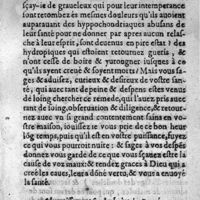 sçay-ie de graueleux qui pour leur intemperance
sont retombez és mesmes douleurs qu'ils auoient
auparauant des hypochondriaques abusans de
leur santé pour ne donner par apres aucun relasche
à leur esprit, sont deuenus en pire estat : des
hydropiques qui estoient retournez gueris, &
n'ont cessé de boire & yurongner iusques à ce
qu'ils ayent creué & soyent morts / Mais vous sages
& aduisez, curieux & desireux de vostre santé,
qui auez tant de peine & despens estes venus
de loing chercher ce remede, qui l'auez pris auec
tant de soing, obseruation & diligence, & retournez
auec vn si grand contentement sains en vostre
maison, iouissez-ie vous prie de ce bon heur
lõg temps, puis qu'il est en vostre puissance, fuyez
ce qui vous pourroit nuire : & sages à vos despés
donnez vous garde de ce que vous sçauez estre la
cause de voz maux : & rendez graces à Dieu qui a
creé les eaux, leur a doné vertu, & vous a enuoyé
la santé.